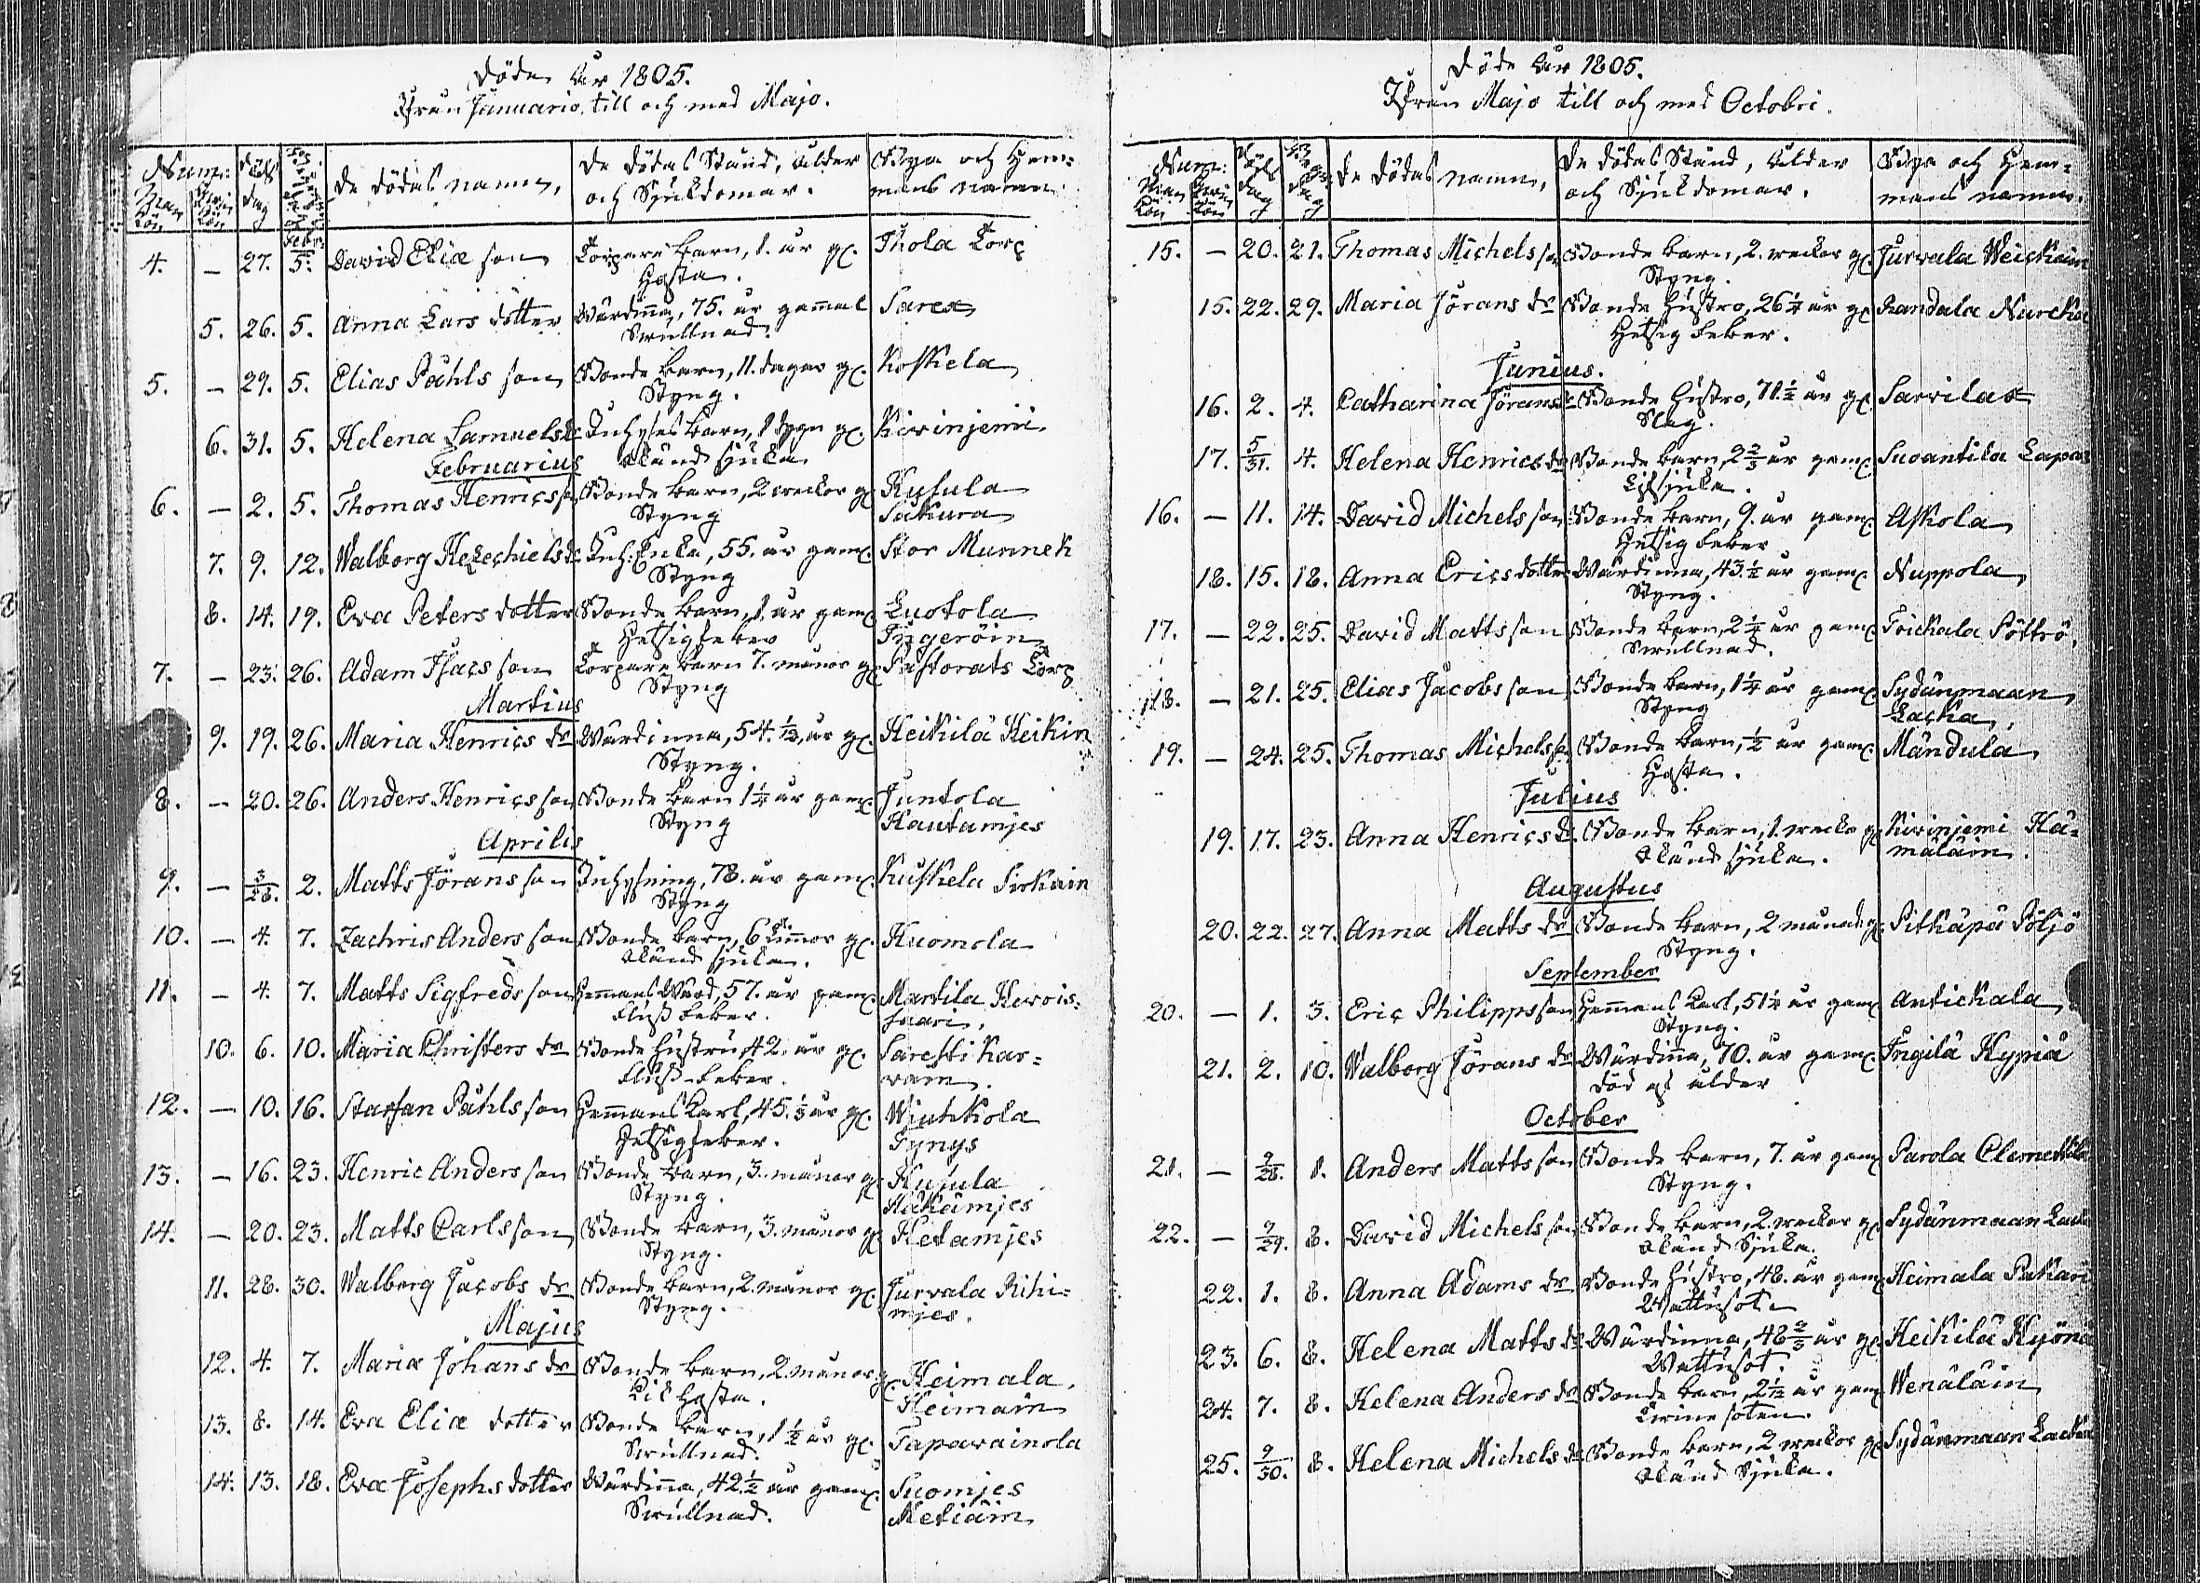 Döde År 1805.
Ifrån Januario till och med Majo.
Num: Mankön Qvinkön Döds dag Begrafnings dag De dödas namn, De dödas Stånd, ålder och Sjukdomar. Byar och Hemmans namn
4. – 27. Febr: 5. David Eliæ son Torpare barn, 1. år gl. Ihola Torp
Hosta.
5. 26. 5. Anna Lars dotter Wärdinna, 75. år gammal Sarex
Swullnad.
5. – 29. 5. Elias Påhls son Bonde barn, 11. dagar gl. Koskela
Styng.
6. 31. 5. Helena Samuels dr Inhyses barn, 1 dygn gl. Kivinjemi
Okänd sjuka
Februarius
6. – 2. 5. Thomas Henrics son Bonde barn, 2 weckor gl. Kusula
Styng Sakura
7. 9. 12. Walborg Hezechiels dr Inh: Enka, 55. år gam. Stor Munnek
Styng
8. 14. 19. Eva Peters dotter Bonde barn, 1. år gam. Luotola
Hetsig feber Tygeröin
7. – 23. 26. Adam Isacs son Torpare barn 7. månor gl. Pastorats Torp
Styng
Martius
9. 19. 26. Maria Henrics dr Wärdinna, 54. 1/3, år gl. Heikilä Heikin
Styng.
8. – 20. 26. Anders Henrics son Bonde barn 1 1/4 år gam. Juntola
Styng Kautamjes
Aprilis
9. – 3/28. 2. Matts Jörans son Inhysning, 78. år gam. Kuskela Sirkain
Styng
10. – 4. 7. Zachris Anders son Bonde barn, 6 timmor gl. Kuomola
Okänd sjuka.
11. – 4. 7. Matts Sigfreds son Hemmans Wärd, 57. år gam. Martila Hervois-
Fluss feber. saari.
10. 6. 10. Maria Christers dr Bonde hustru, 42. år gl. Saresti Kar-
Fluss-feber. vain.
12. – 10. 16. Staffan Påhls son Hemmans Karl, 45. 1/3 år gl. Wiuhkola
Hetsig feber. Tynys
13. – 16. 23. Henric Anders son Bonde barn, 3. månor gl. Kusula
Styng. Häkämjes
14. – 20. 23. Matts Carls son Bonde barn, 3. månor gl. Hetamjes
Styng.
11. 28. 30. Walborg Jacobs dr Bonde barn, 2. månor gl. Jurvala Rihi-
Styng. mjes.
Majus
12. 4. 7. Maria Johans dr Bonde barn, 2. månor gl. Heimala,
Kik hosta. Heimäin
13. 8. 14. Eva Eliæ dotter Bonde barn, 1 1/2 år gl. Tapavainola
Swullnad.
14. 13. 18. Eva Josephs dotter Wärdinna, 42 1/2 år gam. Suomjes
Swullnad. Metiäin
Döde År 1805.
Ifrån Majo till och med Octobri.
Num: Mankön Qvinkön Döds dag Begr. dag De dödas namn, De dödas Stånd, ålder och Sjukdomar. Byar och Hemmans namn.
15. – 20. 21. Thomas Michels son Bonde barn, 2. weckor gl. Jurvala Weickain
Styng.
15. 22. 29. Maria Jörans dr Bonde hustro, 26 1/4 år gl. Randala Nurcka
Hetsig feber.
Junius.
16. 2. 4. Catharina Jörans dr Bonde hustro, 71. 1/2 år gl. Sarvilax
Slag.
17. 5/31. 4. Helena Henrics dr Bonde barn, 2 2/3 år gam. Suoantila
16. – 11. 14. David Michels son Bonde barn, 9. år gam. Askola
Hetsig feber
18. 15. 18. Anna Erics dotter Wärdinna, 43. 1/2 år gam. Nuppola,
Styng.
17. – 22. 25. David Matts son Bonde barn, 2 1/4 år gam. Toickala Pöttrö,
Swullnad.
18. – 21. 25. Elias Jacobs son Bonde barn, 1 1/4 år gam. Sydänmaan
Styng Lacka,
19. – 24. 25. Thomas Michels son Bonde barn, 1/2 år gam. Mändulä
Hosta.
Julius
19. 17. 23. Anna Henrics dr Bonde barn, 1. wecka gl. Kivinjemi Hä-
Okänd sjuka. mäläin.
Augustus
20. 22. 27. Anna Matts dr Bonde barn, 2 månad. gl. Pitkäpä Pöljö
Styng.
September
20. – 1. 3. Eric Philipps son Hemmans Karl, 51 1/4 år gam. Antickala
Styng.
21. 2. 10. Walborg Jörans dr Wärdinna, 70. år gam. Ingilä Hypiä
Död af ålder
October
21. – 9/28. 1. Anders Matts son Bonde barn, 7. år gam. Parola
Styng.
22. – 9/29. 8. David Michels son Bonde barn, 2. weckor gl. Sydänmaan Lack
Okänd Sjuka.
22. 1. 8. Anna Adams dr Bonde hustro, 48. år gam. Heimala Pakari
Wattusot
23. 6. 8. Helena Matts dr Wärdinna, 48 2/3 år gl. Heikilä
Wattusot.
24. 7. 8. Helena Anders dr Bonde barn, 2 1/12 år gam. Wenäläin
25. 9/30. 8. Helena Michels dr Bonde barn, 2 weckor gl. Sydänmaan Lacka
Okänd Sjuka.